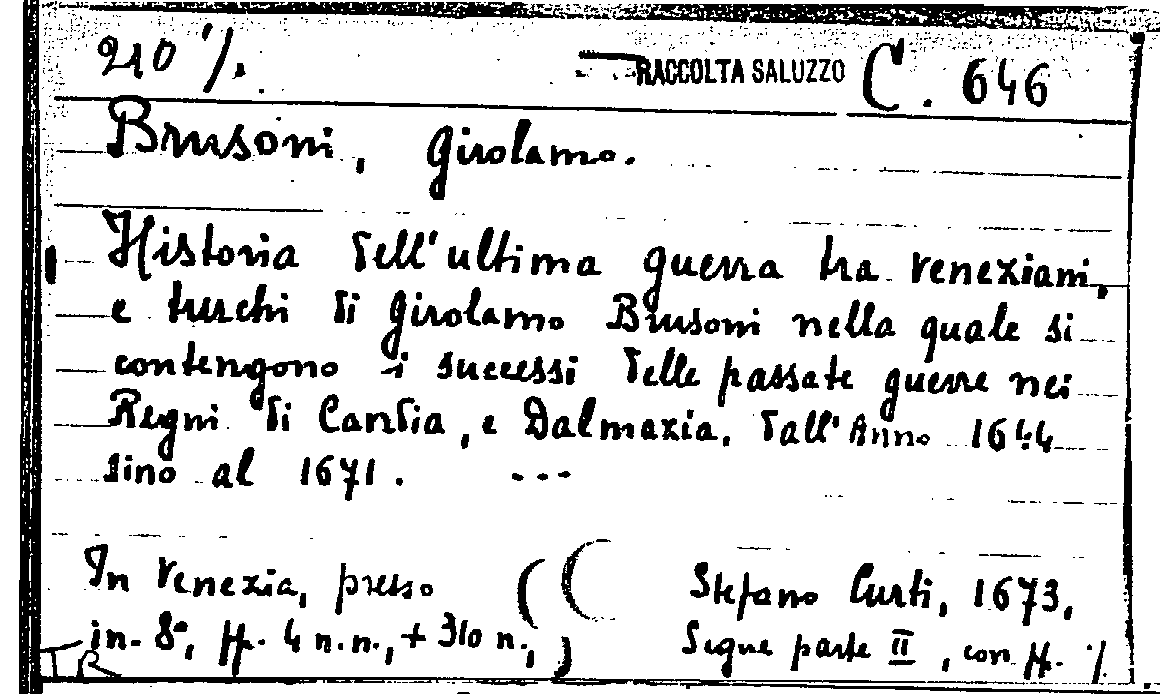 210 ./. RACCOLTA SALUZZO C. 646
Brusoni, Girolamo.
Historia dell'ultima guerra tra Veneziani,
e turchi di Girolamo Brusoni nella quale si
contengono i successi delle passate guerre nei
Regni di Candia, e Dalmazia, dall'Anno 1644
sino al 1671. ---
In Venezia, presso ( ( Stefano Curti, 1673,
in-8°, ff. 4 n.n., + 310 n., ) Segue parte II, con ff. ./.